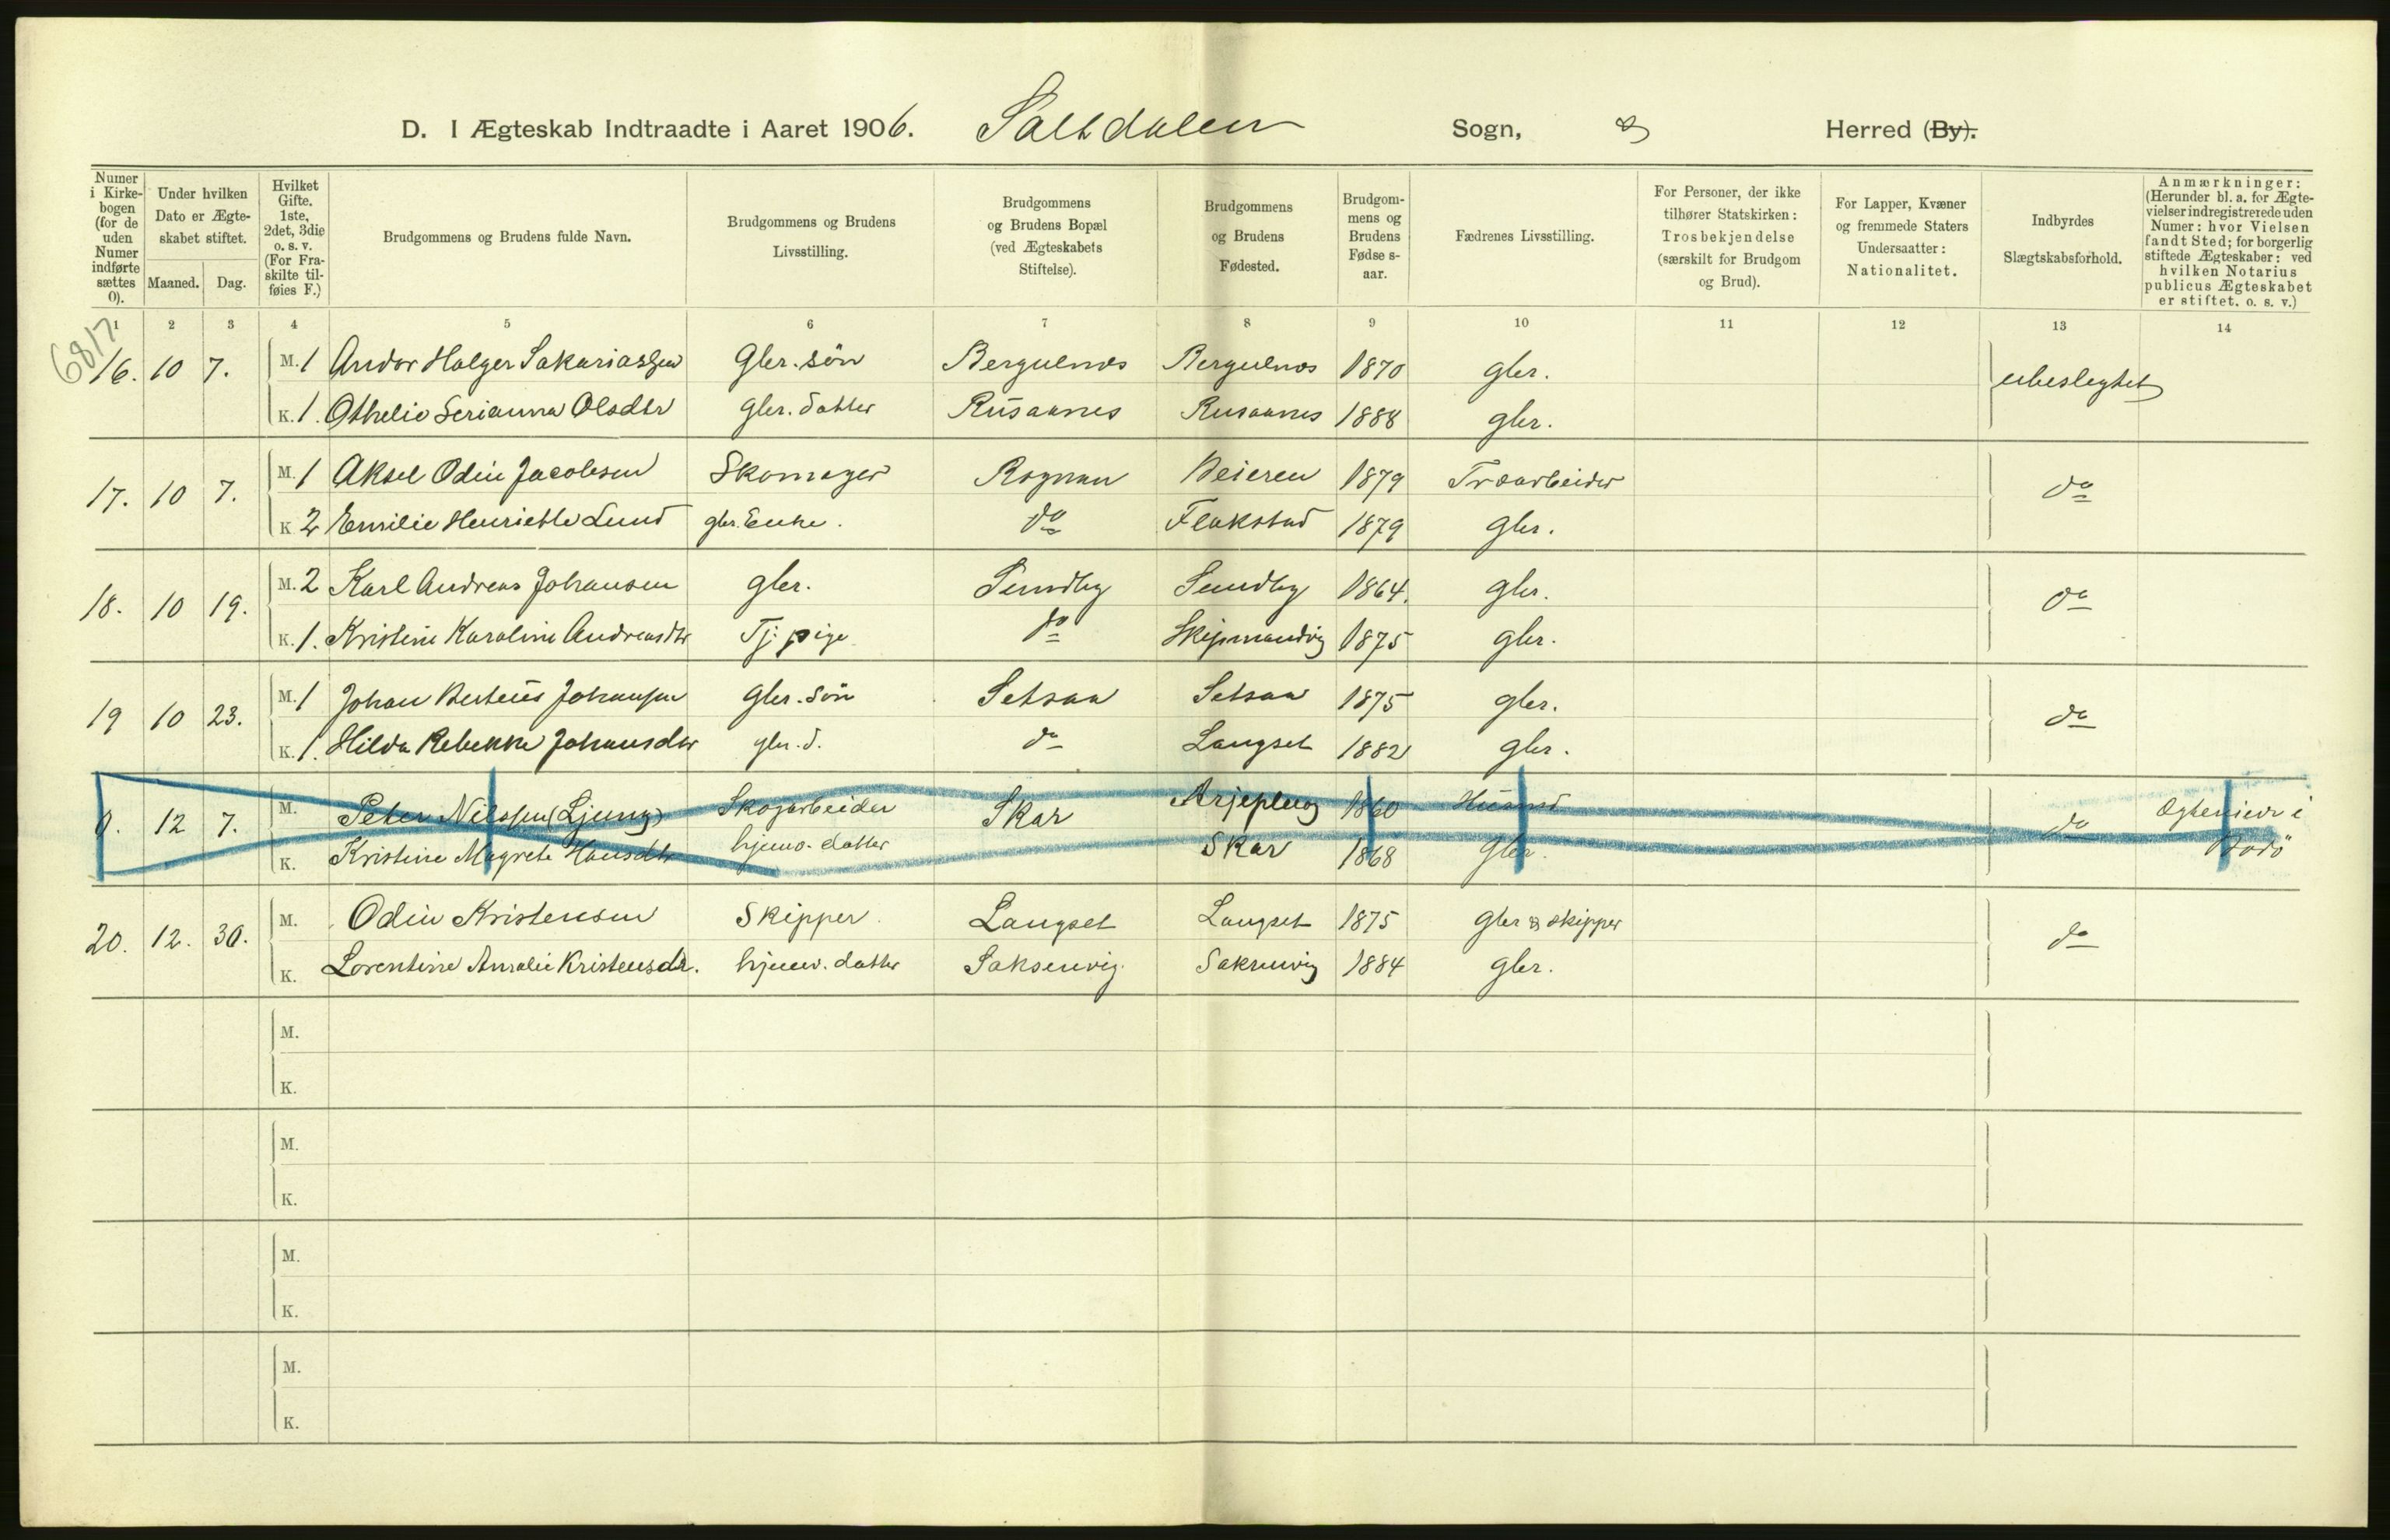 D. I Ægteskab Indtraadte i Aaret 1906. Saltdalen Sogn, Herred (By).
Numer i Kirkebogen (for de uden Numer indførte sættes 0).
Under hvilken Dato er Ægteskabet stiftet.
Maaned. Dag.
Hvilket Gifte. 1ste, 2det, 3die o. s. v. (For Fraskilte tilføies F.)
Brudgommens og Brudens fulde Navn.
Brudgommens og Brudens Livsstilling.
Brudgommens og Brudens Bopæl (ved Ægteskabets Stiftelse).
Brudgommens og Brudens Fødested.
Brudgommens og Brudens Fødselsaar.
Fædrenes Livsstilling.
For Personer, der ikke tilhører Statskirken: Trosbekjendelse (særskilt for Brudgom og Brud).
For Lapper, Kvæner og fremmede Staters Undersaatter: Nationalitet.
Indbyrdes Slægtskabsforhold.
Anmærkninger: (Herunder bl. a. for Ægtevielser indregistrerede uden Numer: hvor Vielsen fandt Sted; for borgerlig stiftede Ægteskaber: ved hvilken Notarius publicus Ægteskabet er stiftet. o. s. v.)
1 2 3 4 5 6 7 8 9 10 11 12 13 14
6817
16. 10 7. M. 1 Andor Holger Sakariassen Gbr. søn Bergulnes Bergulnes 1870 gbr. ubeslegtet
K. 1. Othelie Serianna Olsdtr gbr. datter Rusaanes Rusaanes 1888 gbr.
17. 10 7. M. 1 Aksel Odin Jacobsen Skomager Rognan Beieren 1879 Træarbeider do
K 2 Emilie Henriette Lund gbr. Enke. do Flakstad 1879 gbr.
18. 10 19. M. 2 Karl Andreas Johansen gbr. Sundby Sundby 1864. gbr. do
K. 1. Kristine Karoline Andreasdtr Tj. pige do Skjerstad 1875 gbr.
19 10 23. M. 1 Johan Berteus Johansen Gbr. søn Setsaa Setsaa 1875 gbr. do
K. 1. Hilda Rebekka Johansdtr gbr. d. do Langset 1882 gbr.
0. 12 7. M. Peter Nilssen (Ljung) Skogarbeider Skar Arjeplog 1860 Husmd do Ægteviede i
K. Kristine Magrete Hansdtr hjemv. datter Skar 1868 Gbr. Bodö
20. 12. 30. M. Odin Kristensen Skipper Langset Langset 1875 gbr & skipper do
K. Lorentine Amalie Kristensdr. hjemv. datter Saksenvig Saksenvig 1884 gbr.
M.
K.
M.
K.
M.
K.
M.
K.